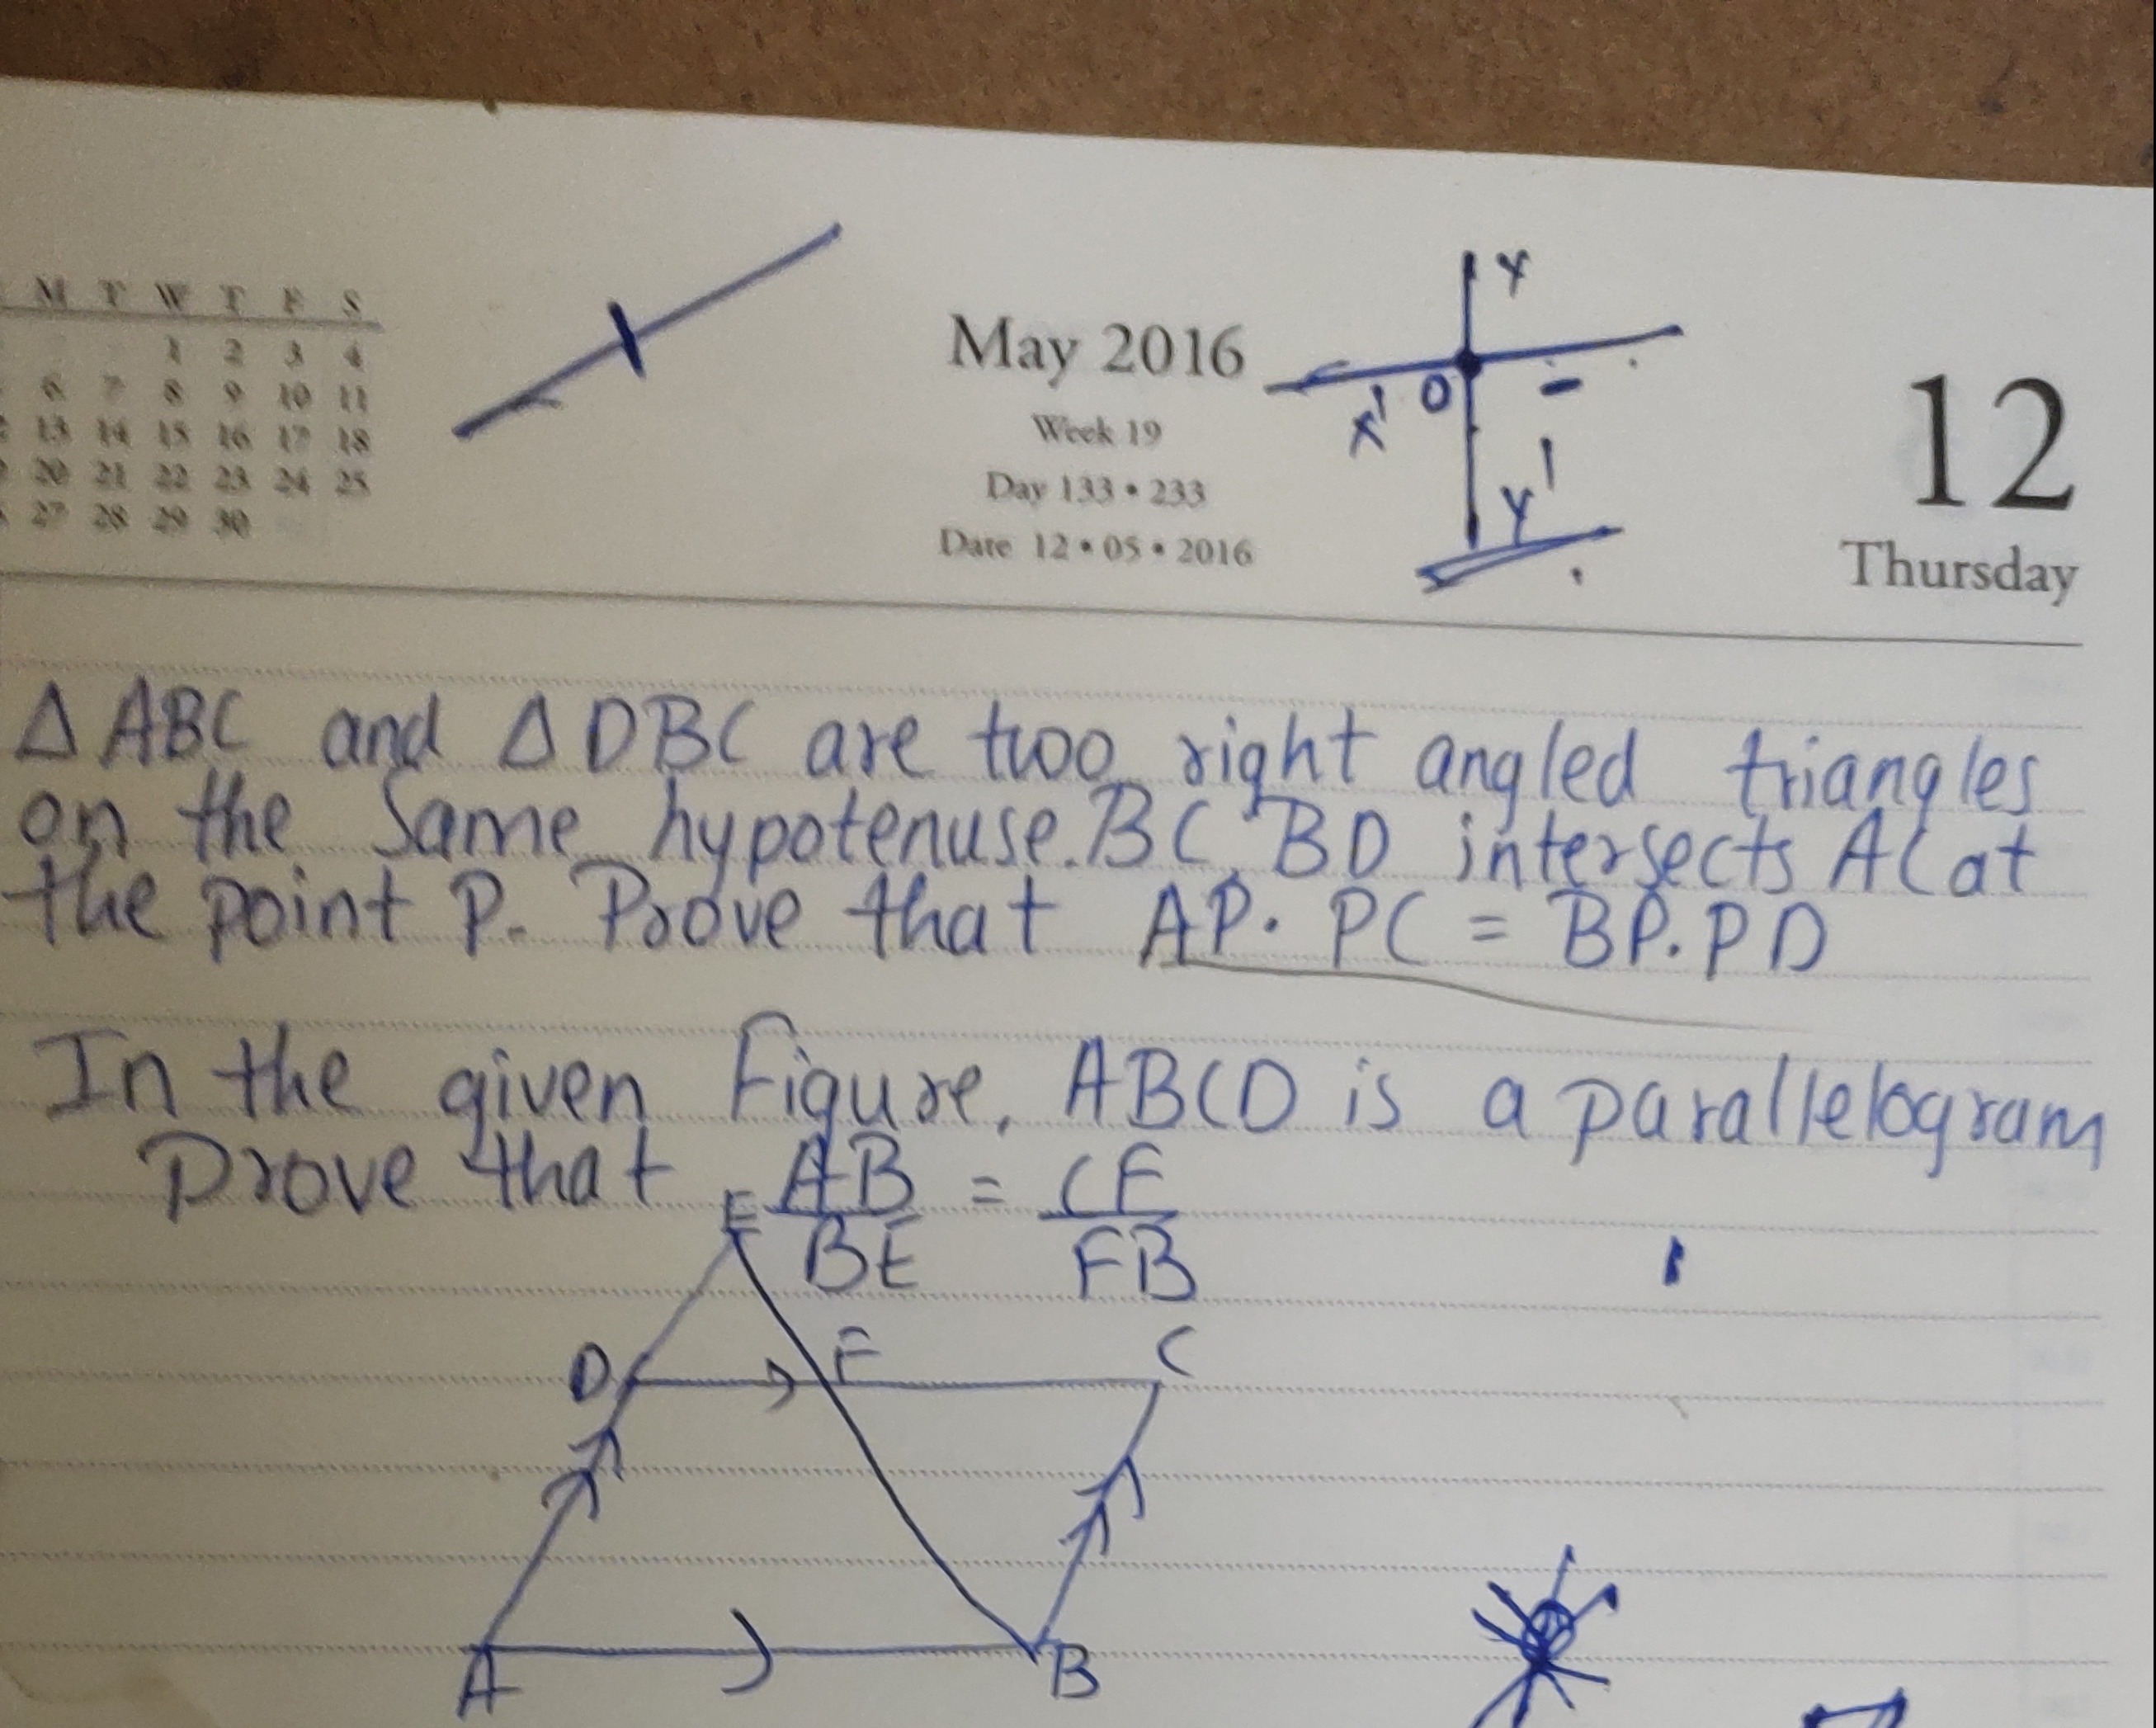 M T W T F S
1 2 3 4
6 7 8 9 10 11
13 14 15 16 17 18
20 21 22 23 24 25
27 28 29 30
May 2016
Week 19
Day 133 • 233
Date 12 • 05 • 2016
Y
X' O
Y'
12
Thursday
Δ ABC and Δ DBC are two right angled triangles
on the same hypotenuse. BC, BD intersects AC at
the point P. Prove that AP. PC = BP. PD
In the given Figure, ABCD is a parallelogram
Prove that AB/BE = CF/FB
E
D F C
A B